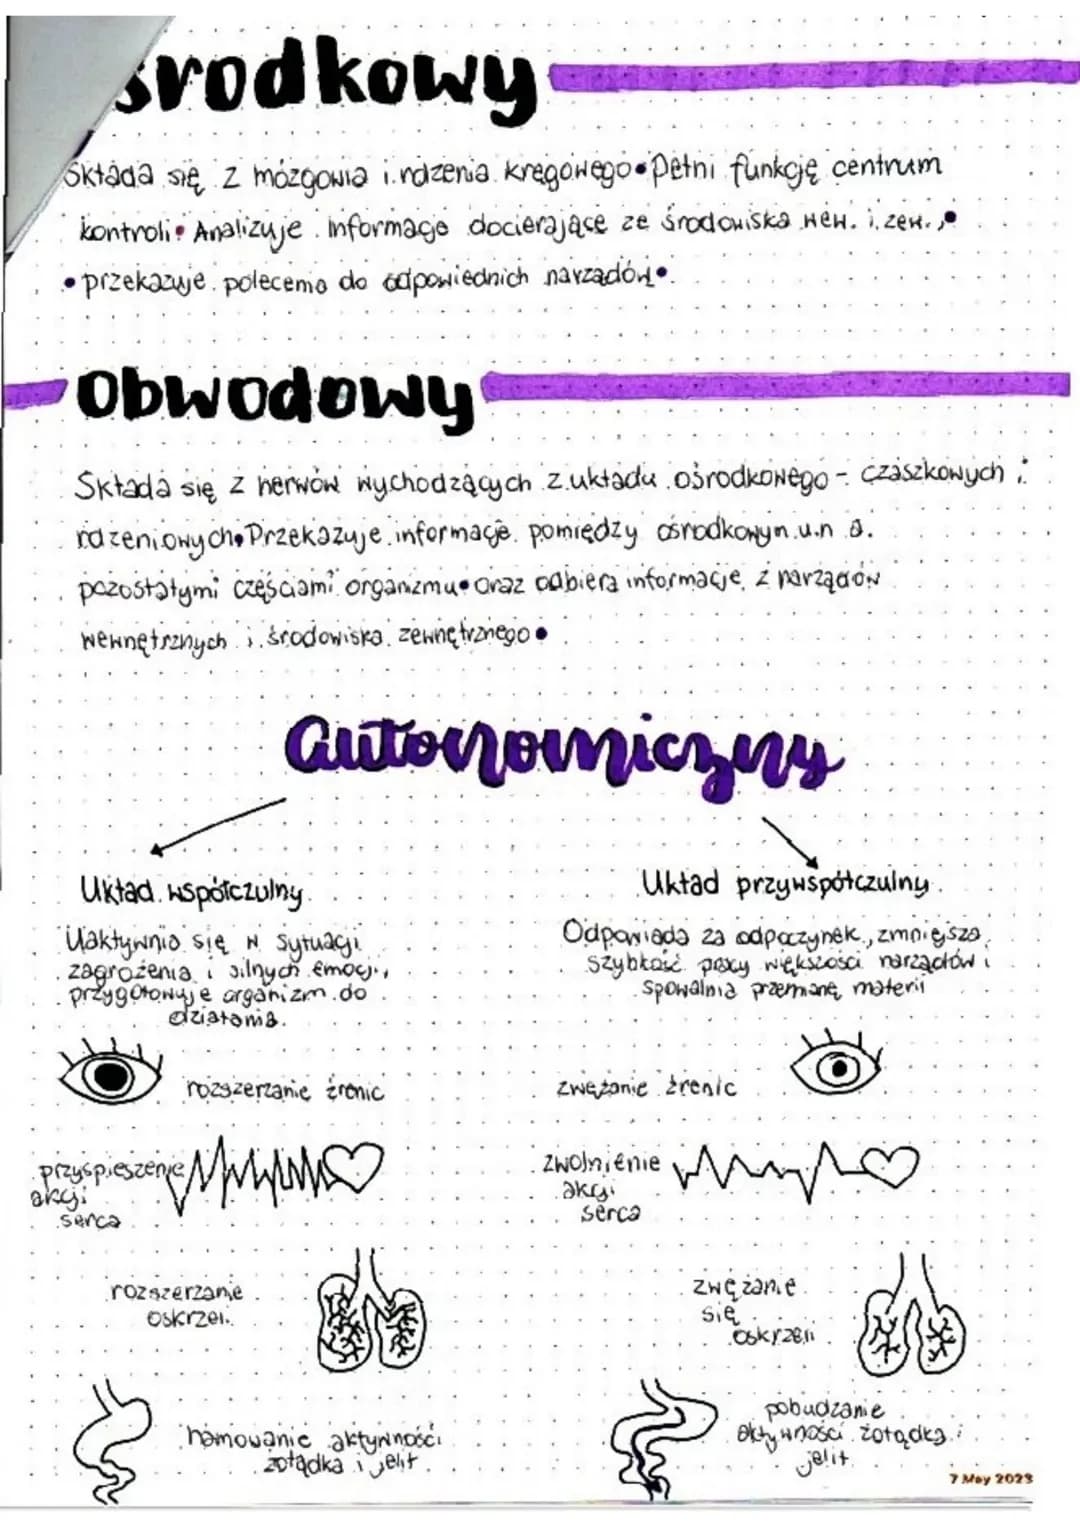 środkowy
Składa się z mózgowia i rdzenia kręgowego • Pełni funkcję centrum
kontroli • Analizuje informacje docierające ze środowiska wew. i zew., •
• przekazuje polecenia do odpowiednich narządów •
Obwodowy
Składa się z nerwów wychodzących z układu ośrodkowego - czaszkowych i
rdzeniowych • Przekazuje informacje pomiędzy ośrodkowym u.n a
pozostałymi częściami organizmu • oraz odbiera informacje z narządów
wewnętrznych i środowiska zewnętrznego •
autonomiczny
Układ współczulny
Uaktywnia się w sytuacji
zagrożenia i silnych emocji,
przygotowuje organizm do
działania.
rozszerzanie źrenic
przyspieszenie
akcji
serca
rozszerzanie
oskrzeli
hamowanie aktywności
żołądka i jelit
Układ przywspółczulny
Odpowiada za odpoczynek, zmniejsza
szybkość pracy większości narządów i
spowalnia przemianę materii
zwężanie źrenic
zwolnienie
akcji
serca
zwężanie
się
oskrzeli
pobudzanie
aktywności żołądka i
jelit
7 May 2023